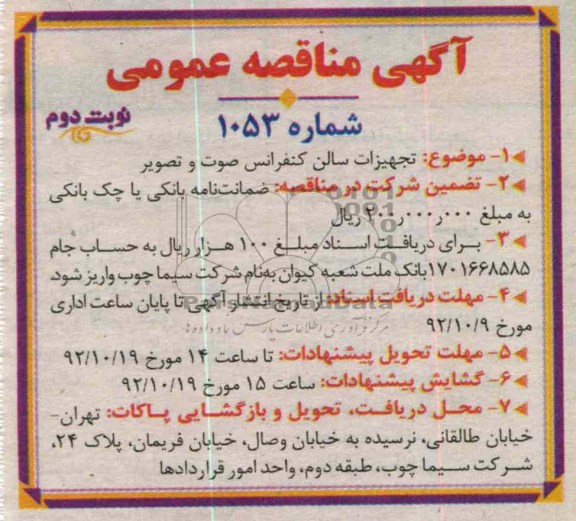 آگهی مناقصه عمومی
نوبت دوم
شماره ۱۰۵۳
۱- موضوع: تجهیزات سالن کنفرانس صوت و تصویر
۲- تضمین شرکت در مناقصه: ضمانت‌نامه بانکی یا چک بانکی
به مبلغ ۲۰۰٫۰۰۰٫۰۰۰ ریال
۳- برای دریافت اسناد مبلغ ۱۰۰ هزار ریال به حساب جام
۱۷۰۱۶۶۸۵۸۵ بانک ملت شعبه کیوان به‌نام شرکت سیما چوب واریز شود.
۴- مهلت دریافت اسناد: از تاریخ انتشار آگهی تا پایان ساعت اداری
مورخ ۹۲/۱۰/۹
مرکز فرآوری اطلاعات پارس نماد داده‌ها
۵- مهلت تحویل پیشنهادات: تا ساعت ۱۴ مورخ ۹۲/۱۰/۱۹
۶- گشایش پیشنهادات: ساعت ۱۵ مورخ ۹۲/۱۰/۱۹
۷- محل دریافت، تحویل و بازگشایی پاکات: تهران-
خیابان طالقانی، نرسیده به خیابان وصال، خیابان فریمان، پلاک ۲۴،
شرکت سیما چوب، طبقه دوم، واحد امور قراردادها